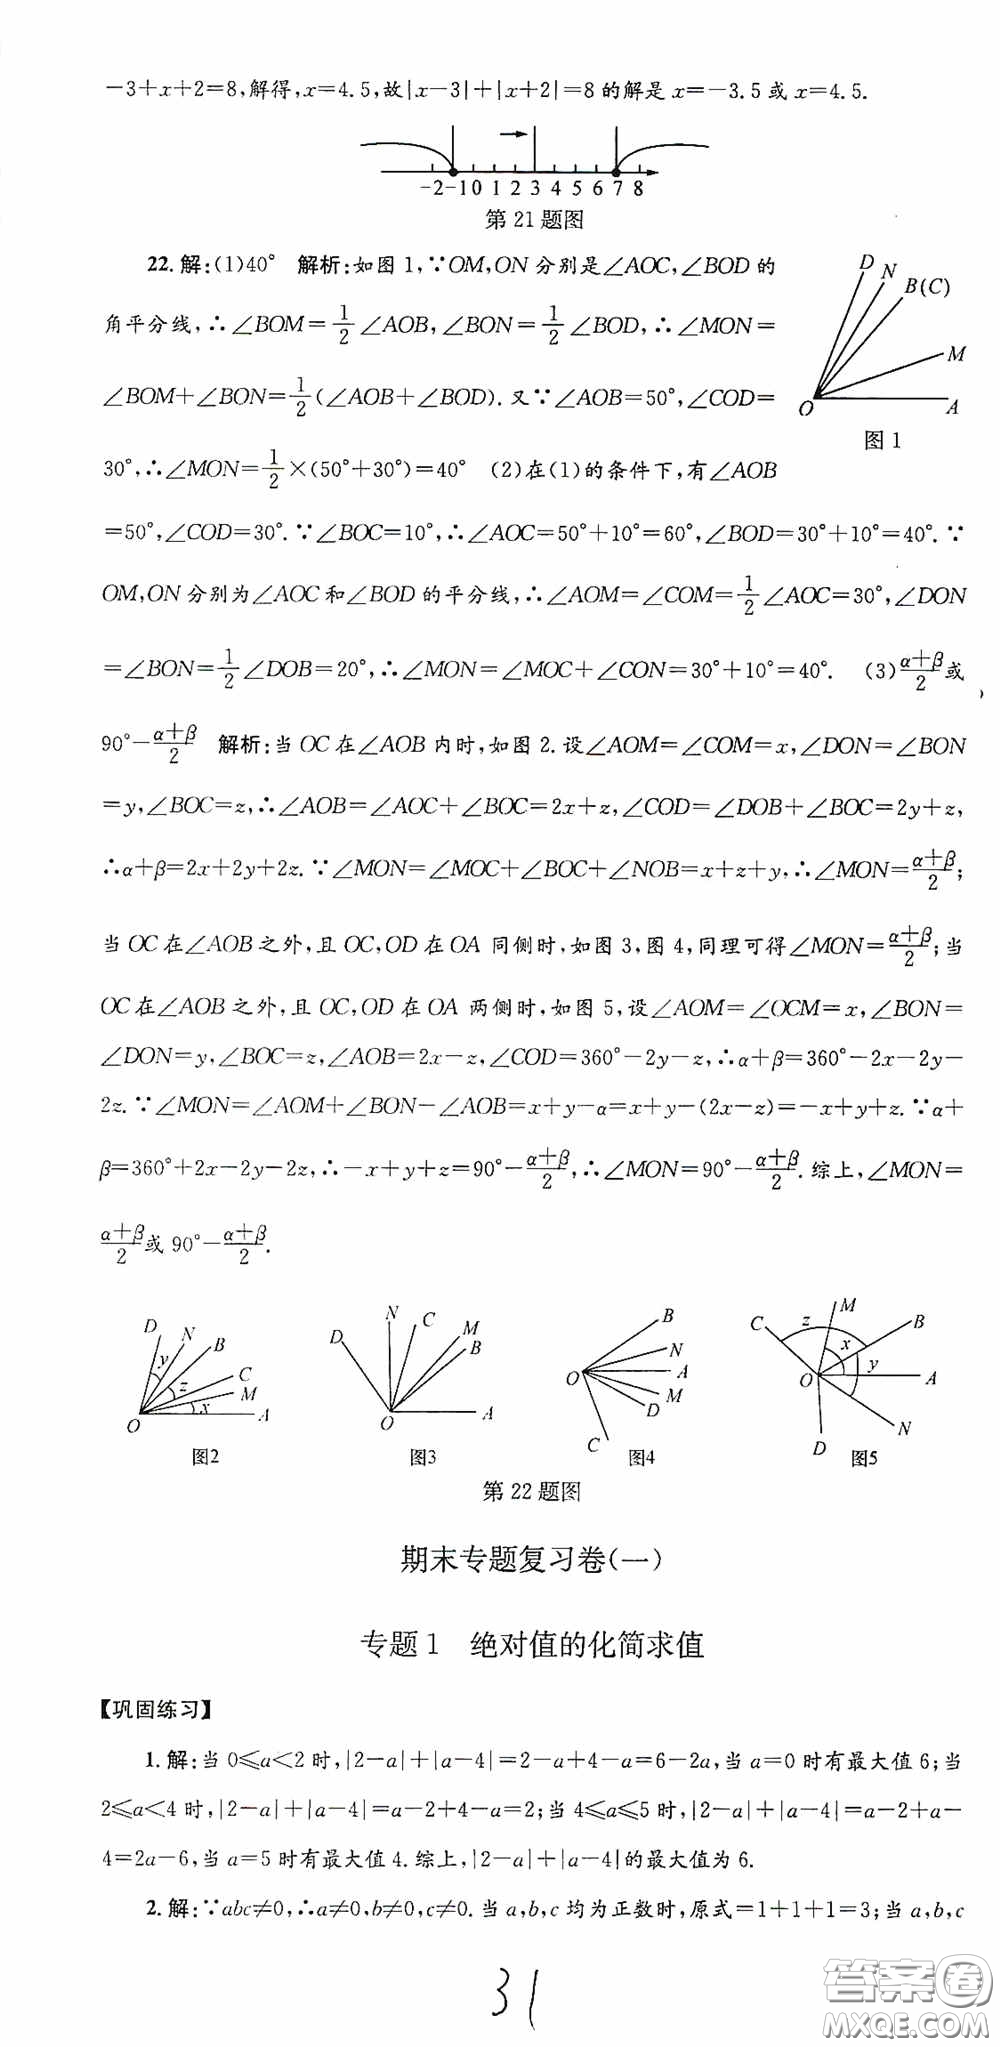 －3＋x＋2＝8,解得,x＝4.5,故|x－3|＋|x＋2|＝8的解是x＝－3.5或x＝4.5.
-2 -1 0 1 2 3 4 5 6 7 8
第21题图
22.解:(1)40° 解析:如图1,∵OM,ON分别是∠AOC,∠BOD的
角平分线,∴∠BOM＝1/2∠AOB,∠BON＝1/2∠BOD,∴∠MON＝
∠BOM＋∠BON＝1/2(∠AOB＋∠BOD).又∵∠AOB＝50°,∠COD＝
30°,∴∠MON＝1/2×(50°＋30°)＝40° (2)在(1)的条件下,有∠AOB
D N B(C) M O A
图1
＝50°,∠COD＝30°.∵∠BOC＝10°,∴∠AOC＝50°＋10°＝60°,∠BOD＝30°＋10°＝40°.∵
OM,ON分别为∠AOC和∠BOD的平分线,∴∠AOM＝∠COM＝1/2∠AOC＝30°,∠DON
＝∠BON＝1/2∠DOB＝20°,∴∠MON＝∠MOC＋∠CON＝30°＋10°＝40°. (3)(α＋β)/2或
90°－(α＋β)/2 解析:当OC在∠AOB内时,如图2.设∠AOM＝∠COM＝x,∠DON＝∠BON
＝y,∠BOC＝z,∴∠AOB＝∠AOC＋∠BOC＝2x＋z,∠COD＝∠DOB＋∠BOC＝2y＋z,
∴α＋β＝2x＋2y＋2z.∵∠MON＝∠MOC＋∠BOC＋∠NOB＝x＋z＋y,∴∠MON＝(α＋β)/2;
当OC在∠AOB之外,且OC,OD在OA同侧时,如图3,图4,同理可得∠MON＝(α＋β)/2;当
OC在∠AOB之外,且OC,OD在OA两侧时,如图5,设∠AOM＝∠OCM＝x,∠BON＝
∠DON＝y,∠BOC＝z,∠AOB＝2x－z,∠COD＝360°－2y－z,∴α＋β＝360°－2x－2y－
2z.∵∠MON＝∠AOM＋∠BON－∠AOB＝x＋y－α＝x＋y－(2x－z)＝－x＋y＋z.∵α＋
β＝360°＋2x－2y－2z,∴－x＋y＋z＝90°－(α＋β)/2,∴∠MON＝90°－(α＋β)/2.综上,∠MON＝
(α＋β)/2或90°－(α＋β)/2.
D N B C M A O y z x
图2
D N C M B O A
图3
B N A M D C O
图4
C z M B x y A O N D
图5
第22题图
期末专题复习卷(一)
专题1 绝对值的化简求值
【巩固练习】
1.解:当0⩽a＜2时,|2－a|＋|a－4|＝2－a＋4－a＝6－2a,当a＝0时有最大值6;当
2⩽a＜4时,|2－a|＋|a－4|＝a－2＋4－a＝2;当4⩽a⩽5时,|2－a|＋|a－4|＝a－2＋a－
4＝2a－6,当a＝5时有最大值4.综上,|2－a|＋|a－4|的最大值为6.
2.解:∵abc≠0,∴a≠0,b≠0,c≠0.当a,b,c均为正数时,原式＝1＋1＋1＝3;当a,b,c
31
答案圈
MXQE.COM